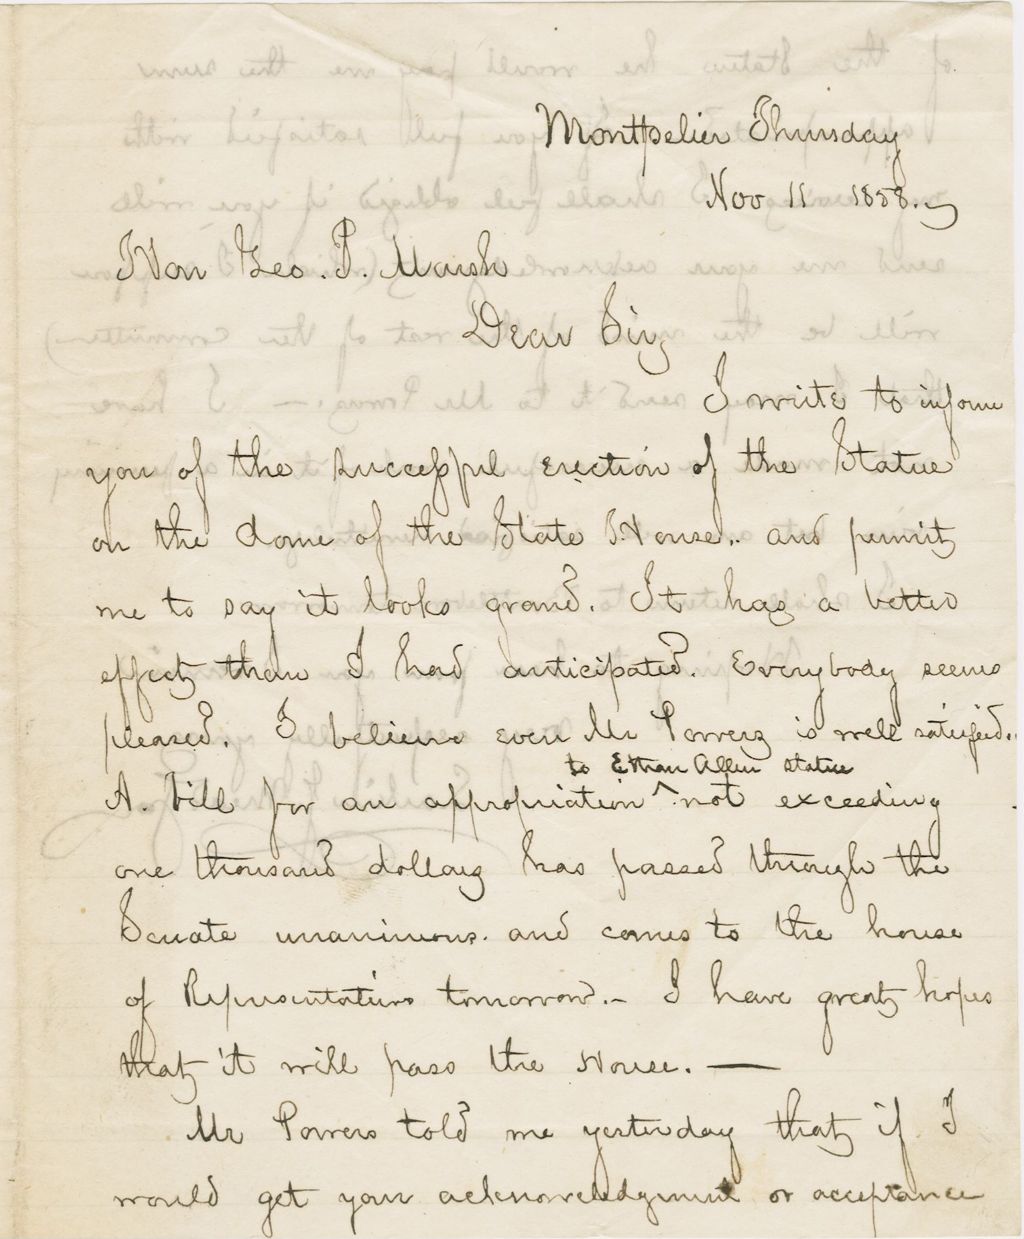 Montpelier Thursday
Nov 11 1858.
Hon Geo. P. Marsh
Dear Sir,
I write to inform
you of the successful erection of the Statue
on the dome of the State House,. and permit
me to say it looks grand. It has a better
effect than I had anticipated. Everybody seems
pleased. I believe even Mr Powers is well satisfied.
to Ethan Allen statue
A. bill for an appropriation ^ not exceeding
one thousand dollars has passed through the
Senate unanimous. and comes to the house
of Representatives tomorrow.– I have great hopes
that it will pass the House. —
Mr Powers told me yesterday that if I
would get your acknowledgment or acceptance